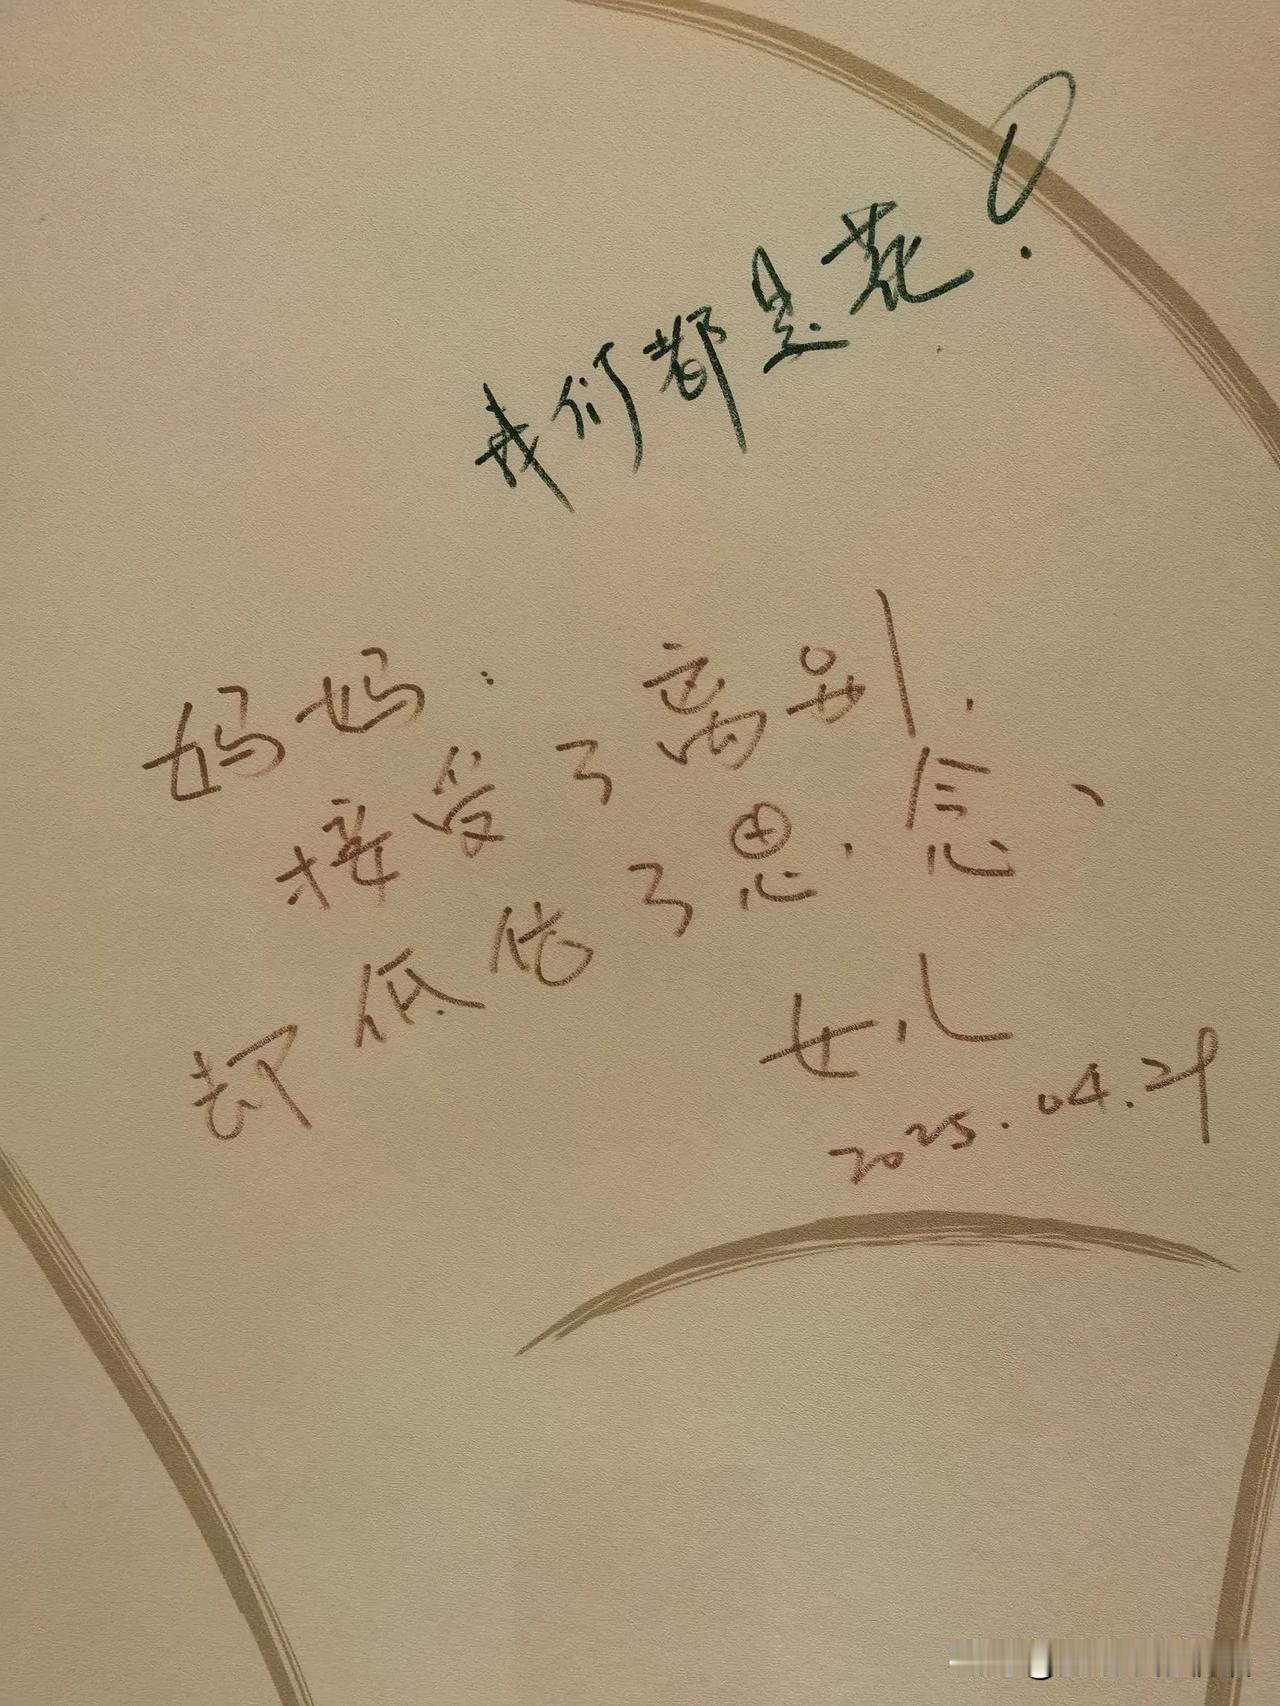 我们都是花！
妈妈：
接受了离别，
却低估了思念、
女儿
2025.04.29